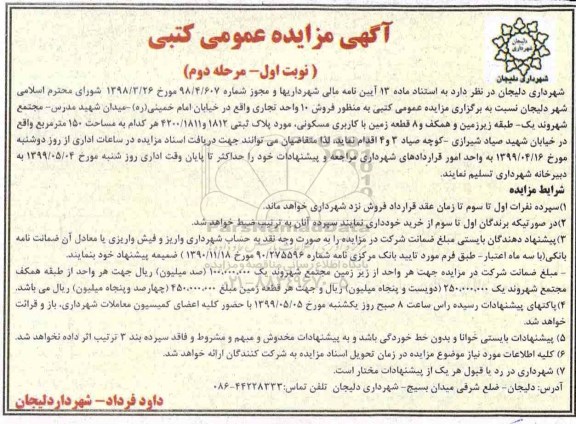 آگهی مزایده عمومی کتبی
( نوبت اول- مرحله دوم)
شهرداری دلیجان
شهرداری دلیجان در نظر دارد به استناد ماده ۱۳ آیین نامه مالی شهرداریها و مجوز شماره ۹۸/۴/۶۰۷ مورخ ۱۳۹۸/۳/۲۶ شورای محترم اسلامی
شهر دلیجان نسبت به برگزاری مزایده عمومی کتبی به منظور فروش ۱۰ واحد تجاری واقع در خیابان امام خمینی(ره)-میدان شهید مدرس- مجتمع
شهروند یک- طبقه زیرزمین و همکف و۸ قطعه زمین با کاربری مسکونی، مورد پلاک ثبتی ۱۸۱۲ و۴۲۰۰/۱۸۱۱ هر کدام به مساحت ۱۵۰ مترمربع واقع
در خیابان شهید صیاد شیرازی -کوچه صیاد ۳ و۴ اقدام نماید، لذا متقاضیان می توانند جهت دریافت اسناد مزایده در ساعات اداری از روز دوشنبه
مورخ ۱۳۹۹/۰۴/۱۶ به واحد امور قراردادهای شهرداری مراجعه و پیشنهادات خود را حداکثر تا پایان وقت اداری روز شنبه مورخ ۱۳۹۹/۰۵/۰۴ به
دبیرخانه شهرداری تسلیم نمایند.
شرایط مزایده
۱)سپرده نفرات اول تا سوم تا زمان عقد قرارداد فروش نزد شهرداری خواهد ماند.
۲)در صورتیکه برندگان اول تا سوم از خرید خودداری نمایند سپرده آنان به ترتیب ضبط خواهد شد.
۳) پیشنهاد دهندگان بایستی مبلغ ضمانت شرکت در مزایده را به صورت وجه نقد به حساب شهرداری واریز و فیش واریزی یا معادل آن ضمانت نامه
بانکی(با سه ماه اعتبار- طبق فرم مورد تایید بانک مرکزی نامه شماره ۹۰/۲۷۵۵۹۶ مورخ ۱۳۹۰/۱۱/۱۸) ضمیمه پیشنهاد خود بنمایند.
- مبلغ ضمانت شرکت در مزایده جهت هر واحد از زیر زمین مجتمع شهروند یک ۱۰۰.۰۰۰.۰۰۰ (صد میلیون) ریال جهت هر واحد از طبقه همکف
مجتمع شهروند یک ۲۵۰.۰۰۰.۰۰۰ (دویست و پنجاه میلیون) ریال و جهت هر قطعه زمین مبلغ ۴۵۰.۰۰۰.۰۰۰ (چهارصد وپنجاه میلیون) ریال می باشد.
۴)پاکتهای پیشنهادات رسیده راس ساعت ۸ صبح روز یکشنبه مورخ ۱۳۹۹/۰۵/۰۵ با حضور کلیه اعضای کمیسیون معاملات شهرداری، باز و قرائت
خواهد شد.
۵) پیشنهادات بایستی خوانا و بدون خط خوردگی باشد و به پیشنهادات مخدوش و مبهم و مشروط و فاقد سپرده بند ۳ ترتیب اثر داده نخواهد شد.
۶) کلیه اطلاعات مورد نیاز موضوع مزایده در زمان تحویل اسناد مزایده به شرکت کنندگان ارائه خواهد شد.
۷) شهرداری در رد یا قبول هر یک از پیشنهادات مختار است.
آدرس: دلیجان- ضلع شرقی میدان بسیج- شهرداری دلیجان تلفن تماس:۴۴۲۲۸۳۳۳-۰۸۶
داود فرداد- شهرداردلیجان